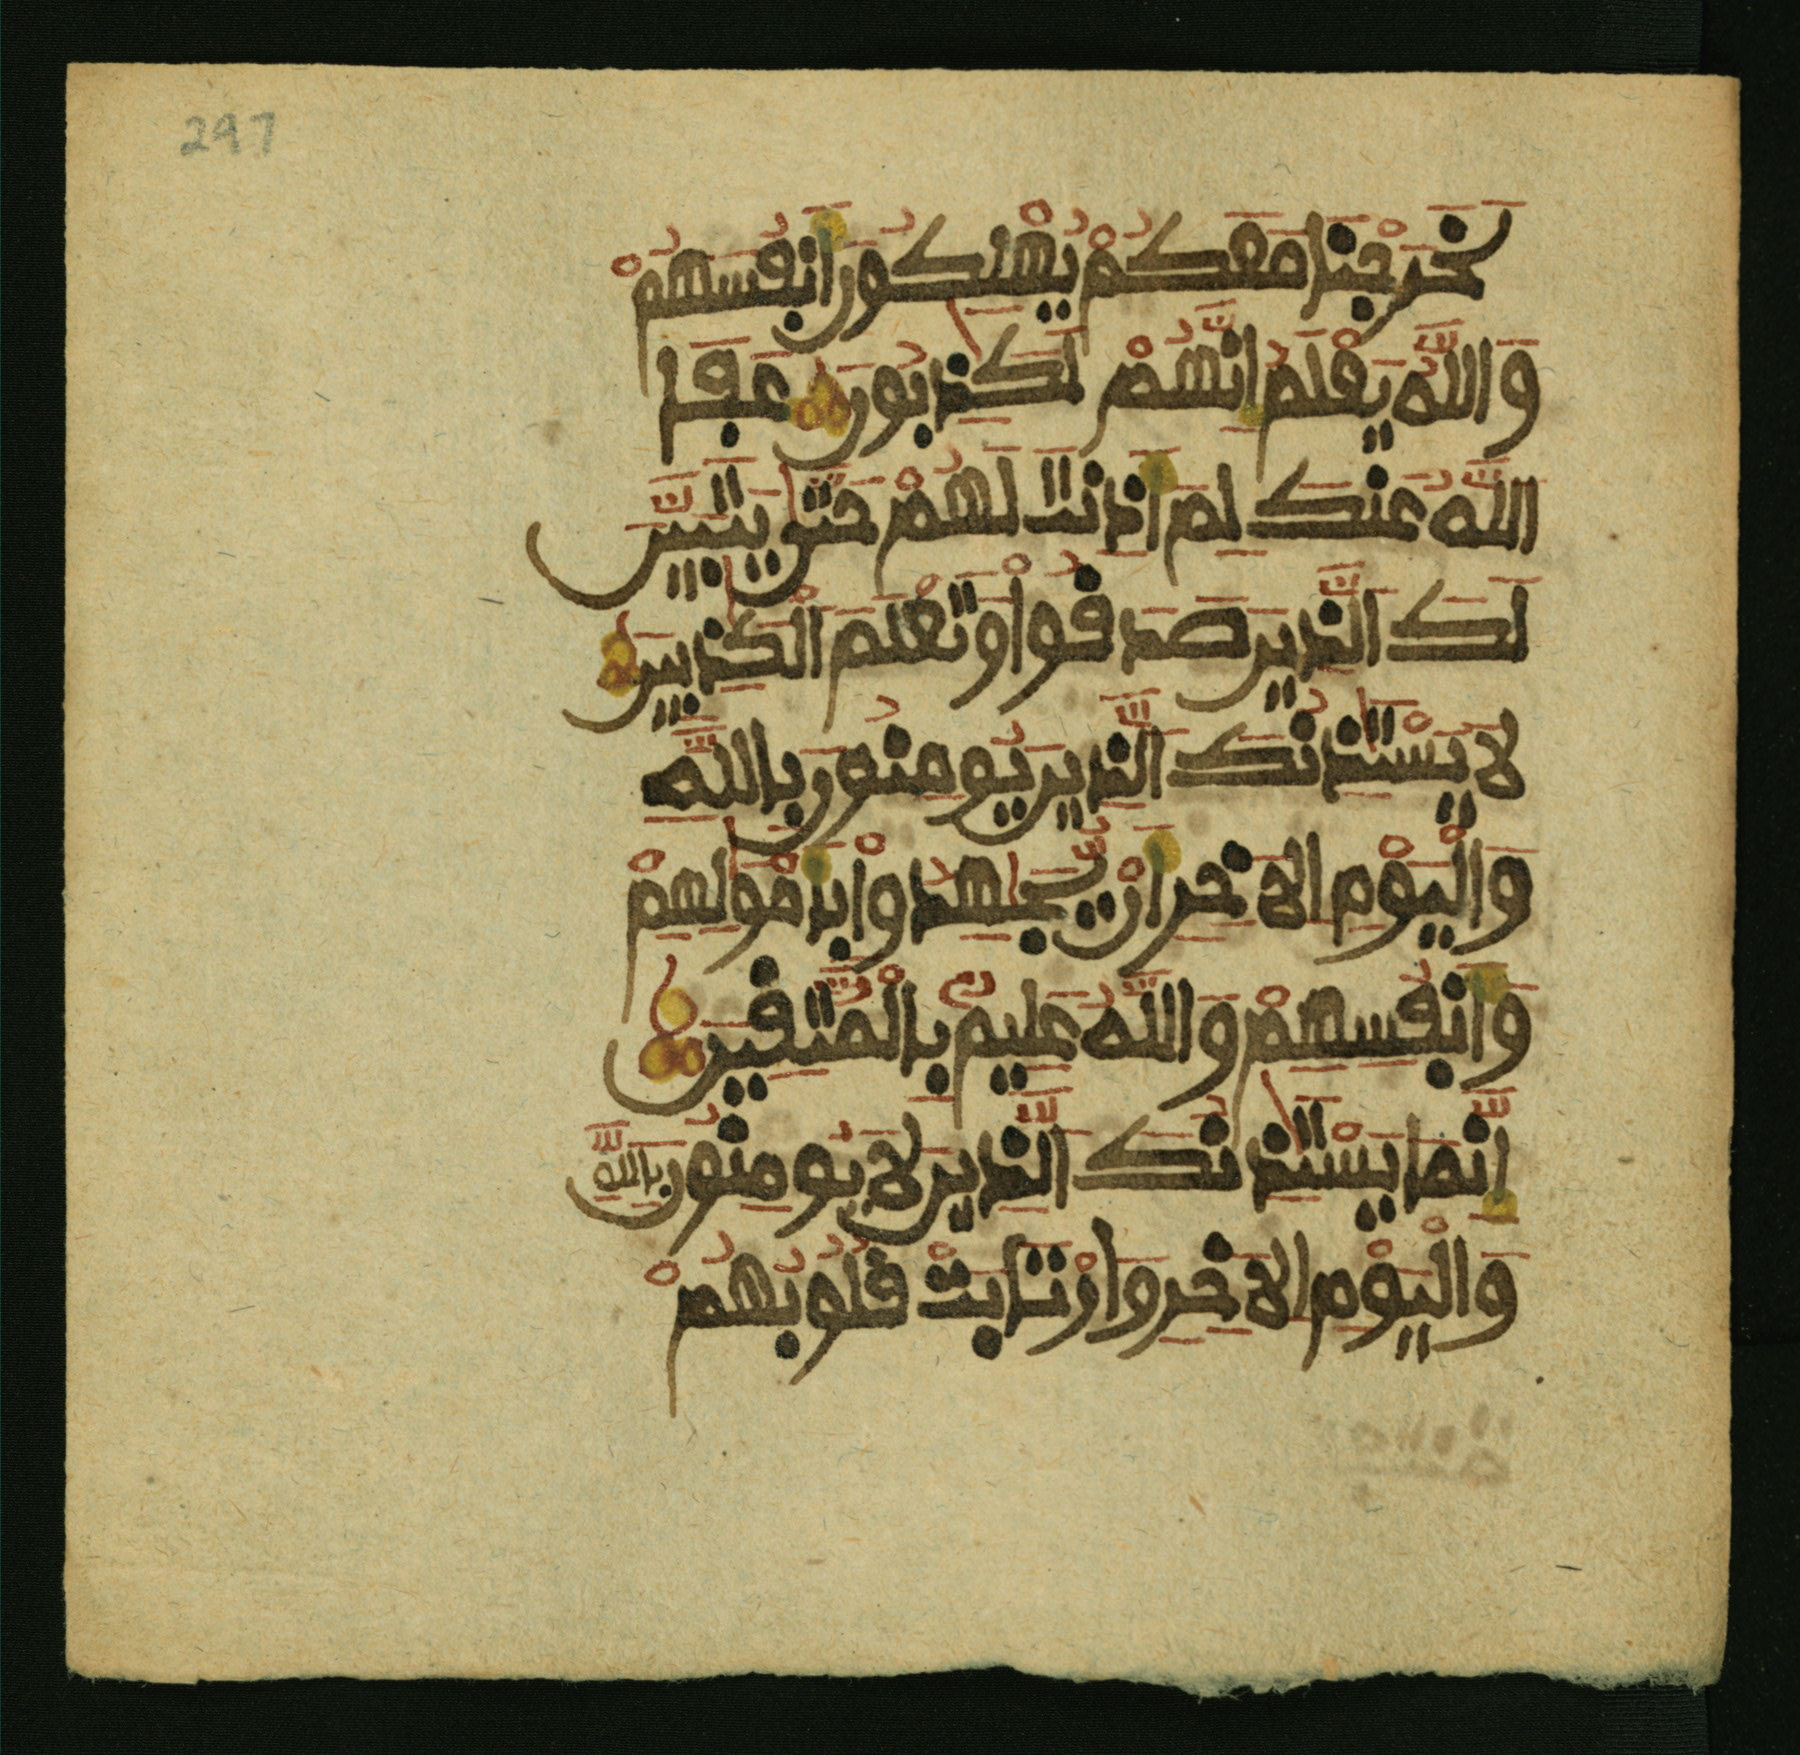 297
لَخَرَجْنَا مَعَكُمْ يُهْلِكُونَ أَنفُسَهُمْ
وَاللَّهُ يَعْلَمُ إِنَّهُمْ لَكَٰذِبُونَ عَفَا
اللَّهُ عَنكَ لِمَ أَذِنتَ لَهُمْ حَتَّىٰ يَتَبَيَّنَ
لَكَ الَّذِينَ صَدَقُواْ وَتَعْلَمَ الْكَٰذِبِينَ
لَا يَسْتَٰذِنُكَ الَّذِينَ يُومِنُونَ بِاللَّهِ
وَالْيَوْمِ الَاخِرِ أَنْ يُّجَٰهِدُواْ بِأَمْوَٰلِهِمْ
وَأَنفُسِهِمْ وَاللَّهُ عَلِيمٌ بِالْمُتَّقِينَ
إِنَّمَا يَسْتَٰذِنُكَ الَّذِينَ لَا يُومِنُونَ بِاللَّهِ
وَالْيَوْمِ الَاخِرِ وَارْتَابَتْ قُلُوبُهُمْ